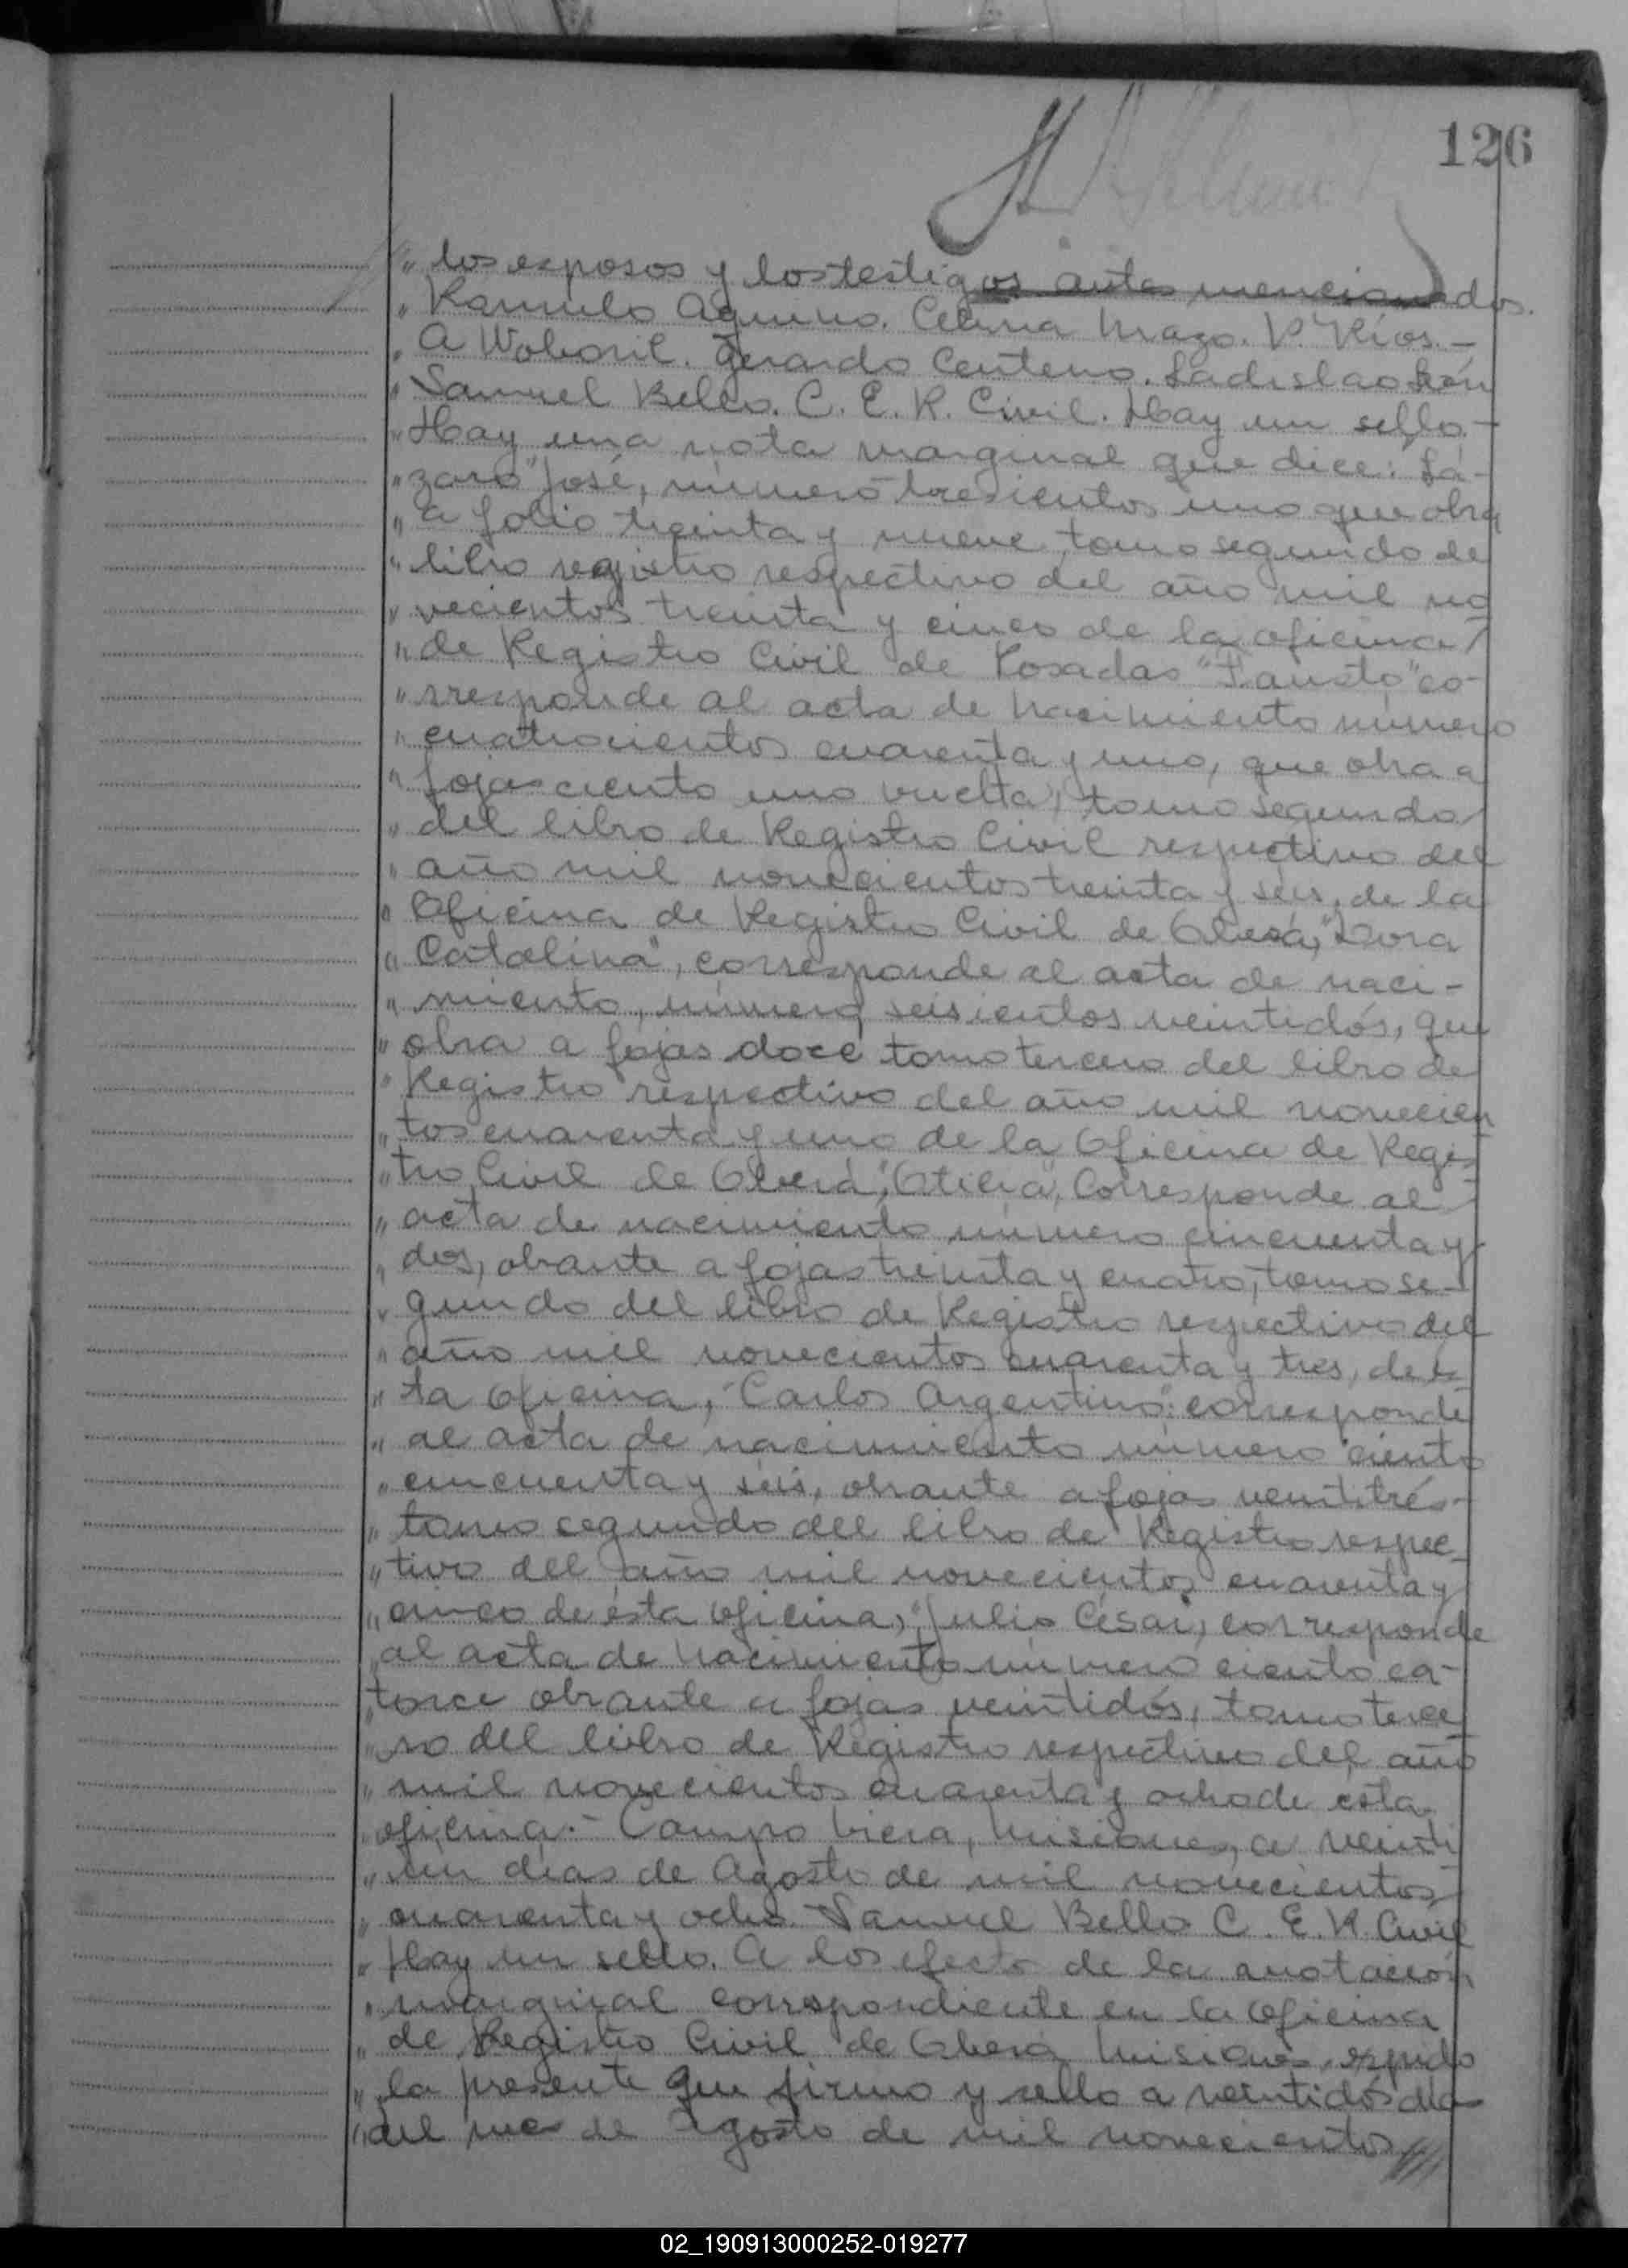 126
" los esposos y los testigos antes mencionados.
" Ramulo Aquino. Celina Mazo. P. Ríos.-
" A Woboril. Gerardo Centeno. Ladislao León
" Samuel Bello. C. E. R. Civil. Hay un sello.-
" Hay una nota marginal que dice: "Lá-
" zaro José, número tresientos uno que obra
" a folio treinta y nueve, tomo segundo de
" libro registro respectivo del año mil no
" vecientos treinta y cinco de la oficina
" de Registro Civil de Posadas "Fausto" co-
" rresponde al acta de nacimiento número
" cuatrocientos cuarenta y uno, que obra a
" fojas ciento uno vuelta, tomo segundo
" del libro de Registro Civil respectivo del
" año mil novecientos treinta y séis, de la
" Oficina de Registro Civil de Oberá, "Dora
" Catalina", corresponde al acta de naci-
" miento, número seisientos veintidós, que
" obra a fojas doce tomo tercero del libro de
" Registro respectivo del año mil novecien
" tos cuarenta y uno de la Oficina de Regis
" tro Civil de Oberá, "Otilia", Corresponde al
" acta de nacimiento número cincuenta y
" dos, obrante a fojas treinta y cuatro, tomo se-
" gundo del libro de Registro respectivo del
" año mil novecientos cuarenta y tres, de és
" ta Oficina, "Carlos Argentino": corresponde
" al acta de nacimiento número ciento
" cincuenta y séis, obrante a fojas veintitrés-
" tomo segundo del libro de Registro respec-
" tivo del año mil novecientos cuarenta y
" cinco de ésta Oficina, "Julio César, corresponde
" al acta de nacimiento número ciento ca-
" torce obrante a fojas veintidós, tomo terce
" ro del libro de Registro respectivo del año
" mil novecientos cuarenta y ocho de ésta
" oficina.- Campo Viera, Misiones, a veinti
" un días de Agosto de mil novecientos
" cuarenta y ocho. Samuel Bello C. E. R. Civil
" Hay un sello. A los efecto de la anotación
" marginal correspondiente en la Oficina
" de Registro Civil de Oberá, Misiones, expido
" la presente que firmo y sello a veintidós días
" del mes de Agosto de mil novecientos///
02_190913000252-019277